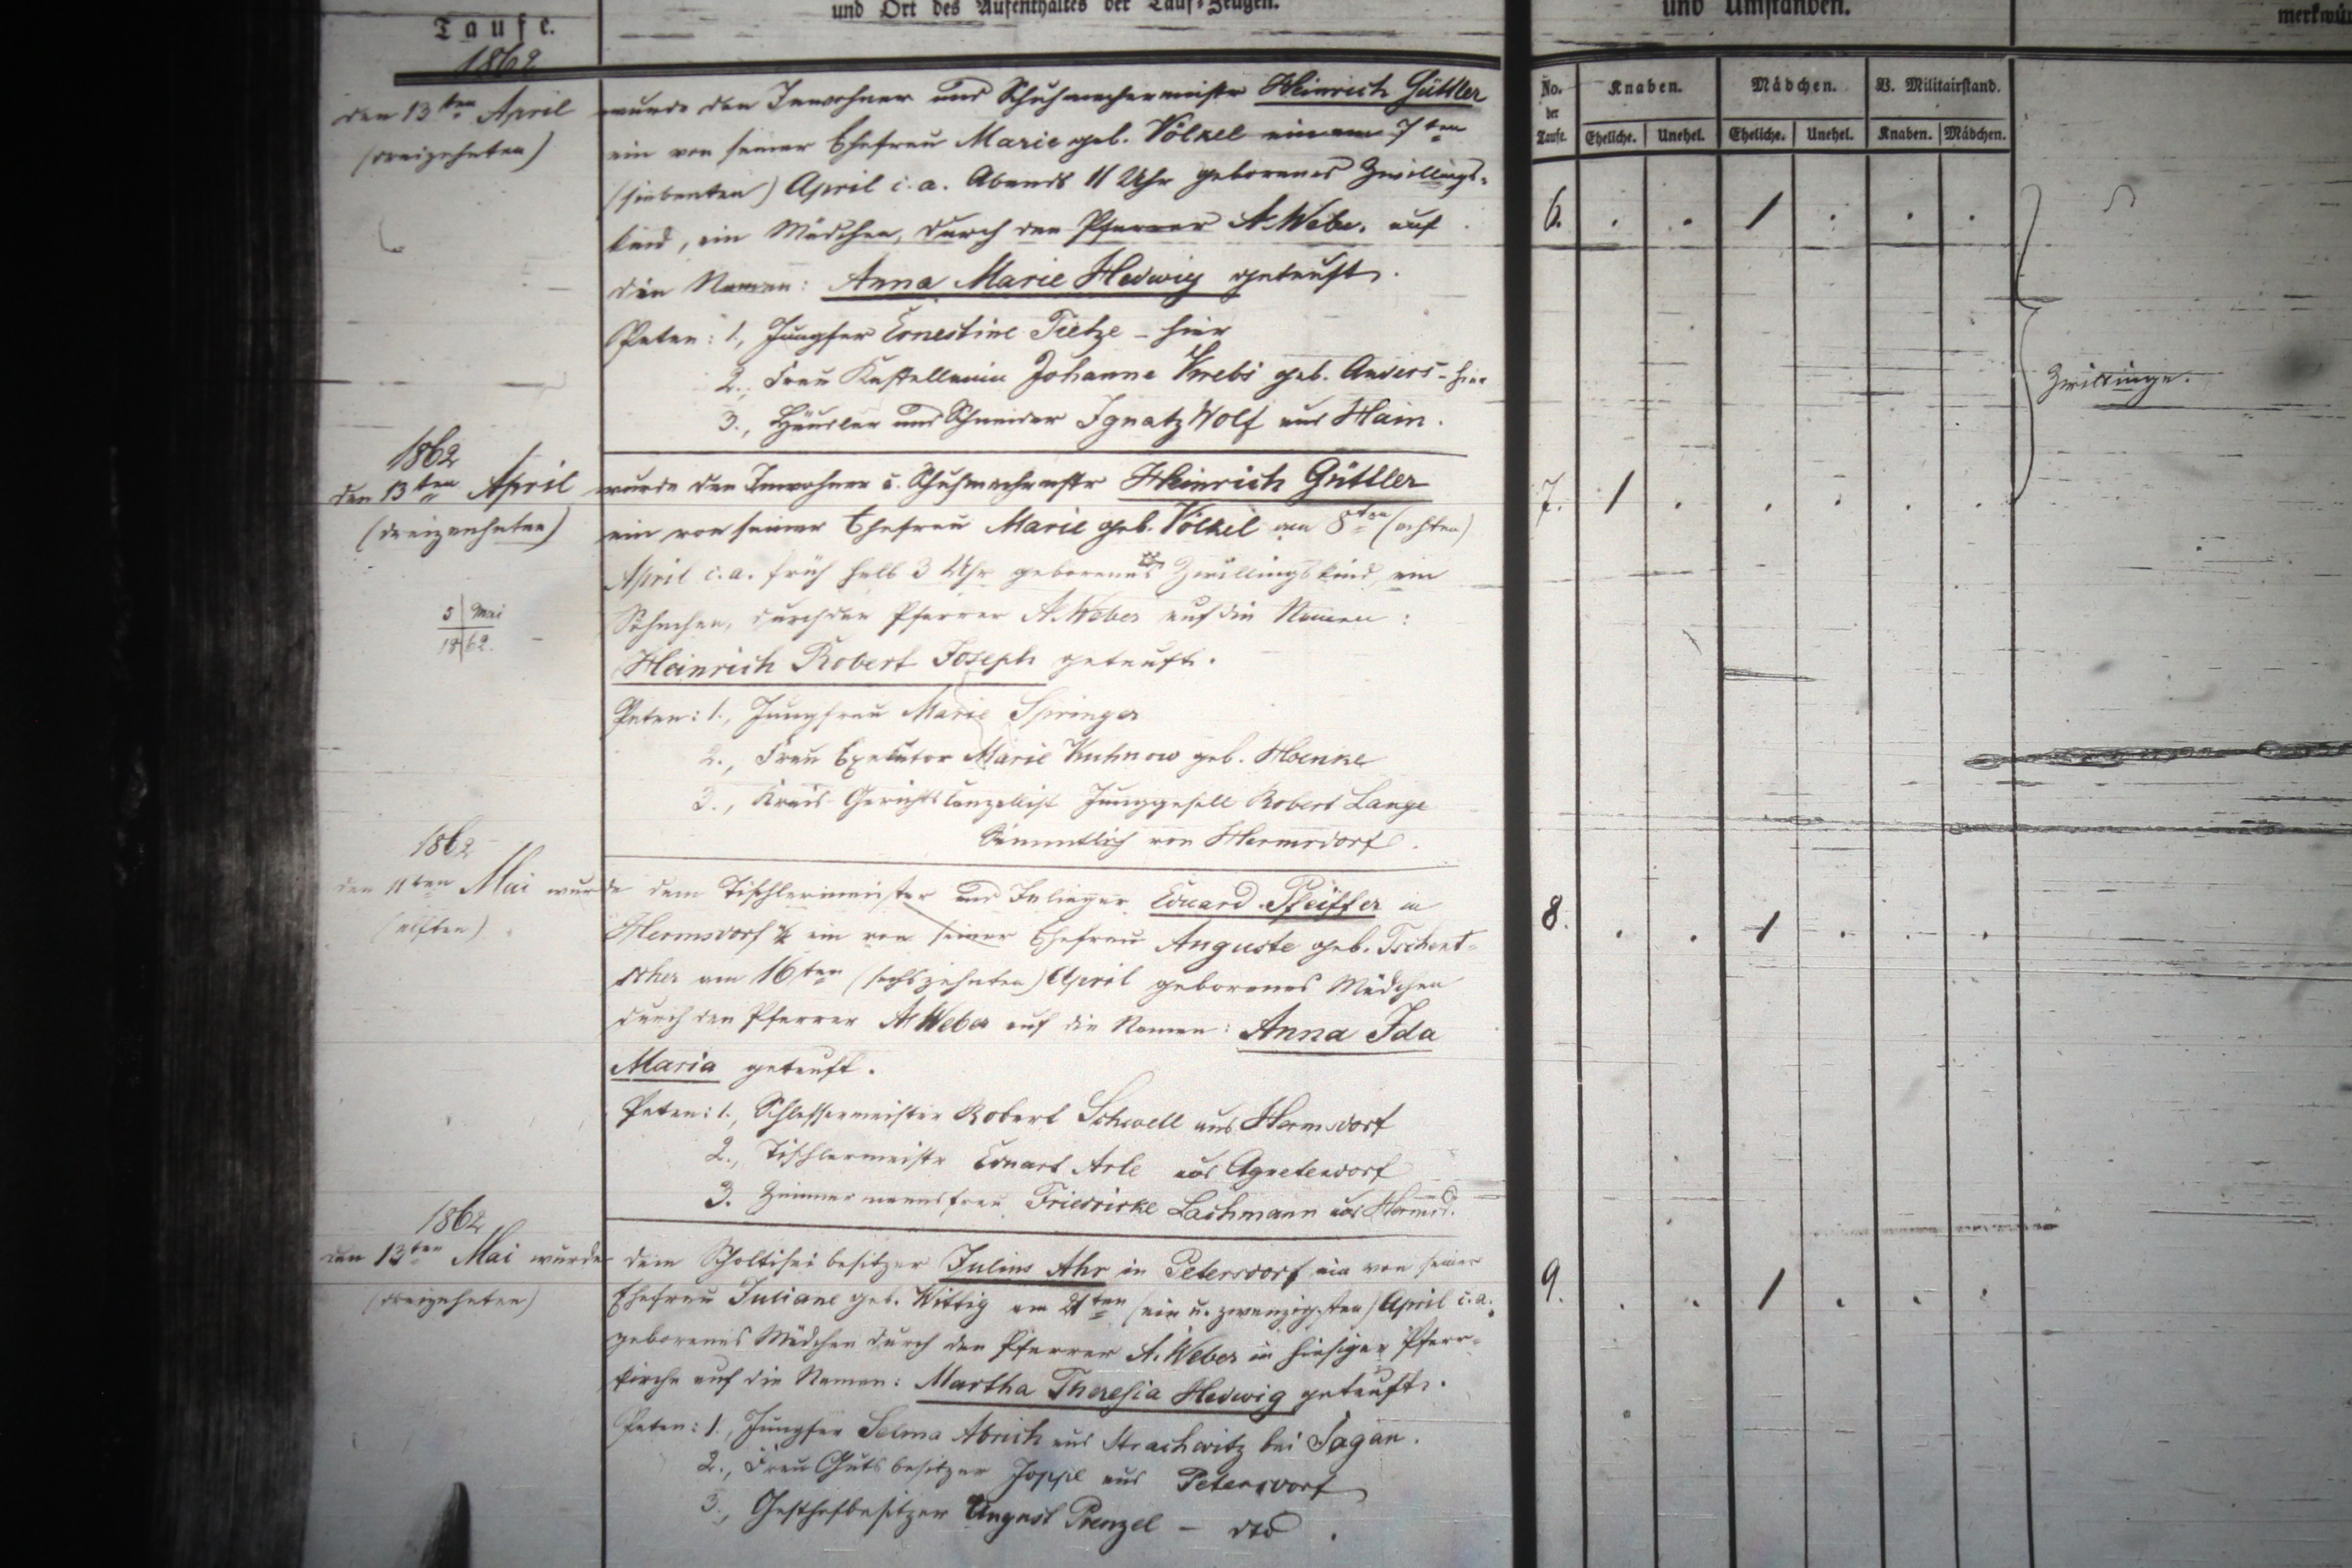 Taufe.
und Ort des Aufenthaltes der Tauf-Zeugen.
und Umständen.
merkwür
No. der Taufe.
Knaben.
Mädchen.
V. Militairstand.
Eheliche. Unehel. Eheliche. Unehel. Knaben. Mädchen.
1862
den 13ten April
(dreizehnten)
wurde dem Inwohner und Schuhmachermeister Heinrich Güttler
ein von seiner Ehefrau Marie geb. Völkel am 7ten
(siebenten) April c. a. Abends 11 Uhr geborenes Zwillings-
kind, ein Mädchen, durch den Pfarrer A. Weber auf
den Namen: Anna Marie Hedwig getauft.
Paten: 1., Jungfer Ernestine Tietze - hier
2., Frau Kastellanin Johanna Krebs geb. Anders - hier
3., Häusler und Schneider Ignatz Wolf aus Hain.
6. . . 1 . . .
Zwillinge.
1862
den 13ten April
(dreizehnten)
wurde dem Inwohner u. Schuhmachermstr Heinrich Güttler
ein von seiner Ehefrau Marie geb. Völkel am 8ten (achten)
April c. a. früh halb 3 Uhr geborenes Zwillingskind, ein
Söhnchen, durch den Pfarrer A. Weber auf die Namen:
Heinrich Robert Joseph getauft.
Paten: 1., Jungfrau Marie Springer
2., Frau Exekutor Marie Kuhnow geb. Hoenke
3., Kreis-Gerichts Canzellist Junggesell Robert Lange
Sämmtlich von Hermsdorf.
5 Mai
1862.
7. 1 . . . . .
1862
den 11ten Mai wurde dem Tischlermeister und Inlieger Eduard Pfeiffer in
(elften)
Hermsdorf u/K ein von seiner Ehefrau Auguste geb. Tschent-
scher am 16ten (sechszehnten) April geborenes Mädchen
durch den Pfarrer A. Weber auf die Namen: Anna Ida
Maria getauft.
Paten: 1., Schlossermeister Robert Schwell aus Hermsdorf
2., Tischlermeister Eduart Arle aus Agnetendorf
3. Zimmermannsfrau Friedricke Lachmann aus Hermsd.
8. . . 1 . . .
1862
den 13ten Mai wurde dem Scholtisei besitzer Julius Ahr in Petersdorf ein von seiner
(dreizehnten)
Ehefrau Juliane geb. Wittig am 21ten (ein u. zwanzigsten) April c. a.
geborenes Mädchen durch den Pfarrer A. Weber in hiesiger Pfarr-
kirche auf die Namen: Martha Theresia Hedwig getauft.
Paten: 1., Jungfer Selma Abrich aus Strachwitz bei Sagan.
2., Frau Gutsbesitzer Joppe aus Petersdorf
3., Gasthofbesitzer August Prenzel - dto.
9. . . 1 . . .